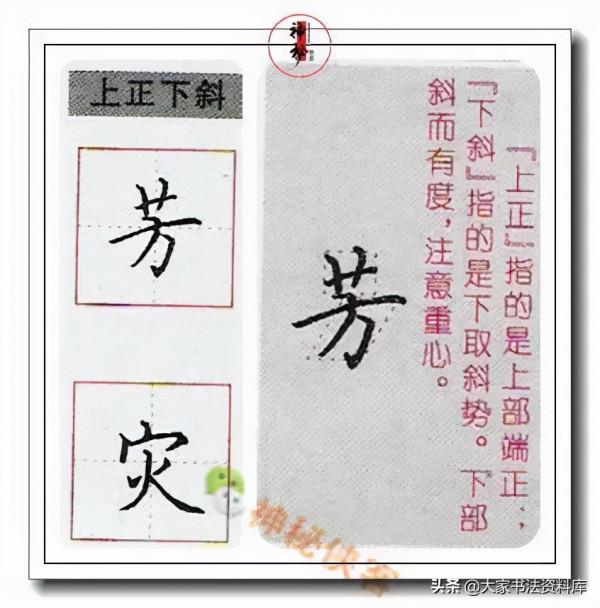 神秘
上正下斜
芳
灾
芳
『上正』指的是上部端正；
『下斜』指的是下取斜势。下部
斜而有度，注意重心。
神秘侠客
头条 @大家书法资料库